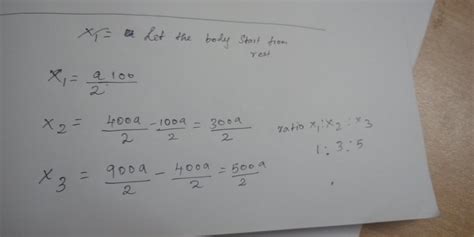 x₁ = Let the body start from
rest
x₁ = a 100/2
x₂ = 400a/2 - 100a/2 = 300a/2
ratio x₁ : x₂ : x₃
1 : 3 : 5
x₃ = 900a/2 - 400a/2 = 500a/2